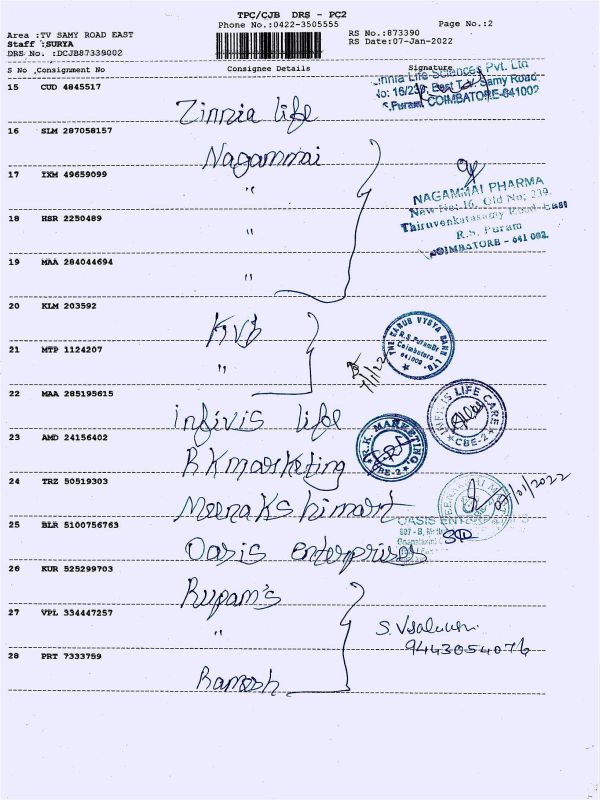 TPC/CJB DRS - PC2
Phone No.:0422-3505555
Page No.:2
Area :TV SAMY ROAD EAST
RS No.:873390
Staff :SURYA
RS Date:07-Jan-2022
DRS No. :DCJB87339002
S No Consignment No Consignee Details Signature
15 CUD 4845517
Zinnia life
Zinnia Life Sciences Pvt. Ltd
No: 16/239, East T.V. Samy Road
R.S.Puram, COIMBATORE-641002
16 SLM 287058157
Nagammai
17 IXM 49659099
"
NAGAMMAI PHARMA
New No: 16, Old No: 239,
Thiruvenkatasamy Road East
R.S. Puram
COIMBATORE - 641 002.
18 HSR 2250489
"
19 MAA 284044694
"
20 KLM 203592
KVB
THE KARUR VYSYA BANK LTD.
R.S.Puram Br
Coimbatore
641002
7/1/22
21 MTP 1124207
"
22 MAA 285195615
infivis life
INFIVIS LIFE CARE
CBE-2
23 AMD 24156402
R K marketing
R.K. MARKETING
CBE-2
24 TRZ 50519303
Meenakshi mart
07/01/2022
25 BLR 5100756763
Oasis enterprises
OASIS ENTERPRISES
26 KUR 525299703
Rupam's
27 VPL 334447257
"
9443054076
28 PRT 7333759
Ramesh